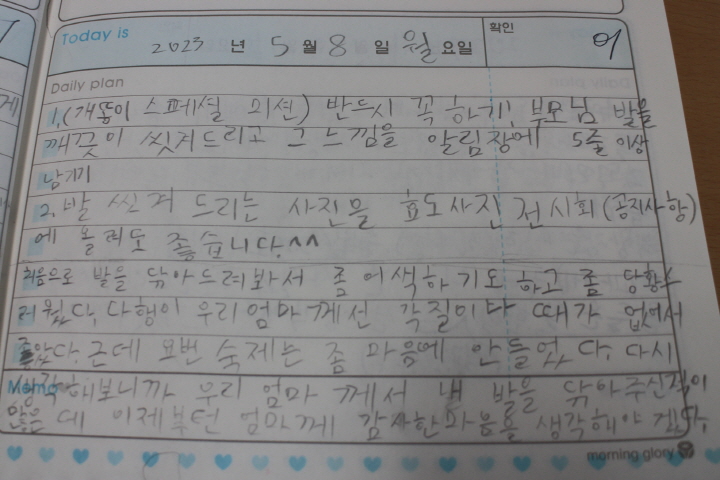 Today is 2023 년 5 월 8 일 월 요일 확인
Daily plan
1. (개똥이 스페셜 미션) 반드시 꼭 하기!, 부모님 발을
깨끗이 씻겨드리고 그 느낌을 알림장에 5줄 이상
남기기
2. 발 씻겨 드리는 사진을 효도사진 전시회(공지사항)
에 올려도 좋습니다.^^
처음으로 발을 닦아드려봐서 좀 어색하기도 하고 좀 당황스
러웠다. 다행이 우리 엄마께선 각질이다 때가 없어서
좋았다. 근데 요번 숙제는 좀 마음에 안들었다. 다시
Memo
생각해보니까 우리 엄마 께서 내 발을 닦아주신적이
많은데 이제부턴 엄마께 감사한마음을 생각해야겠다.
morning glory